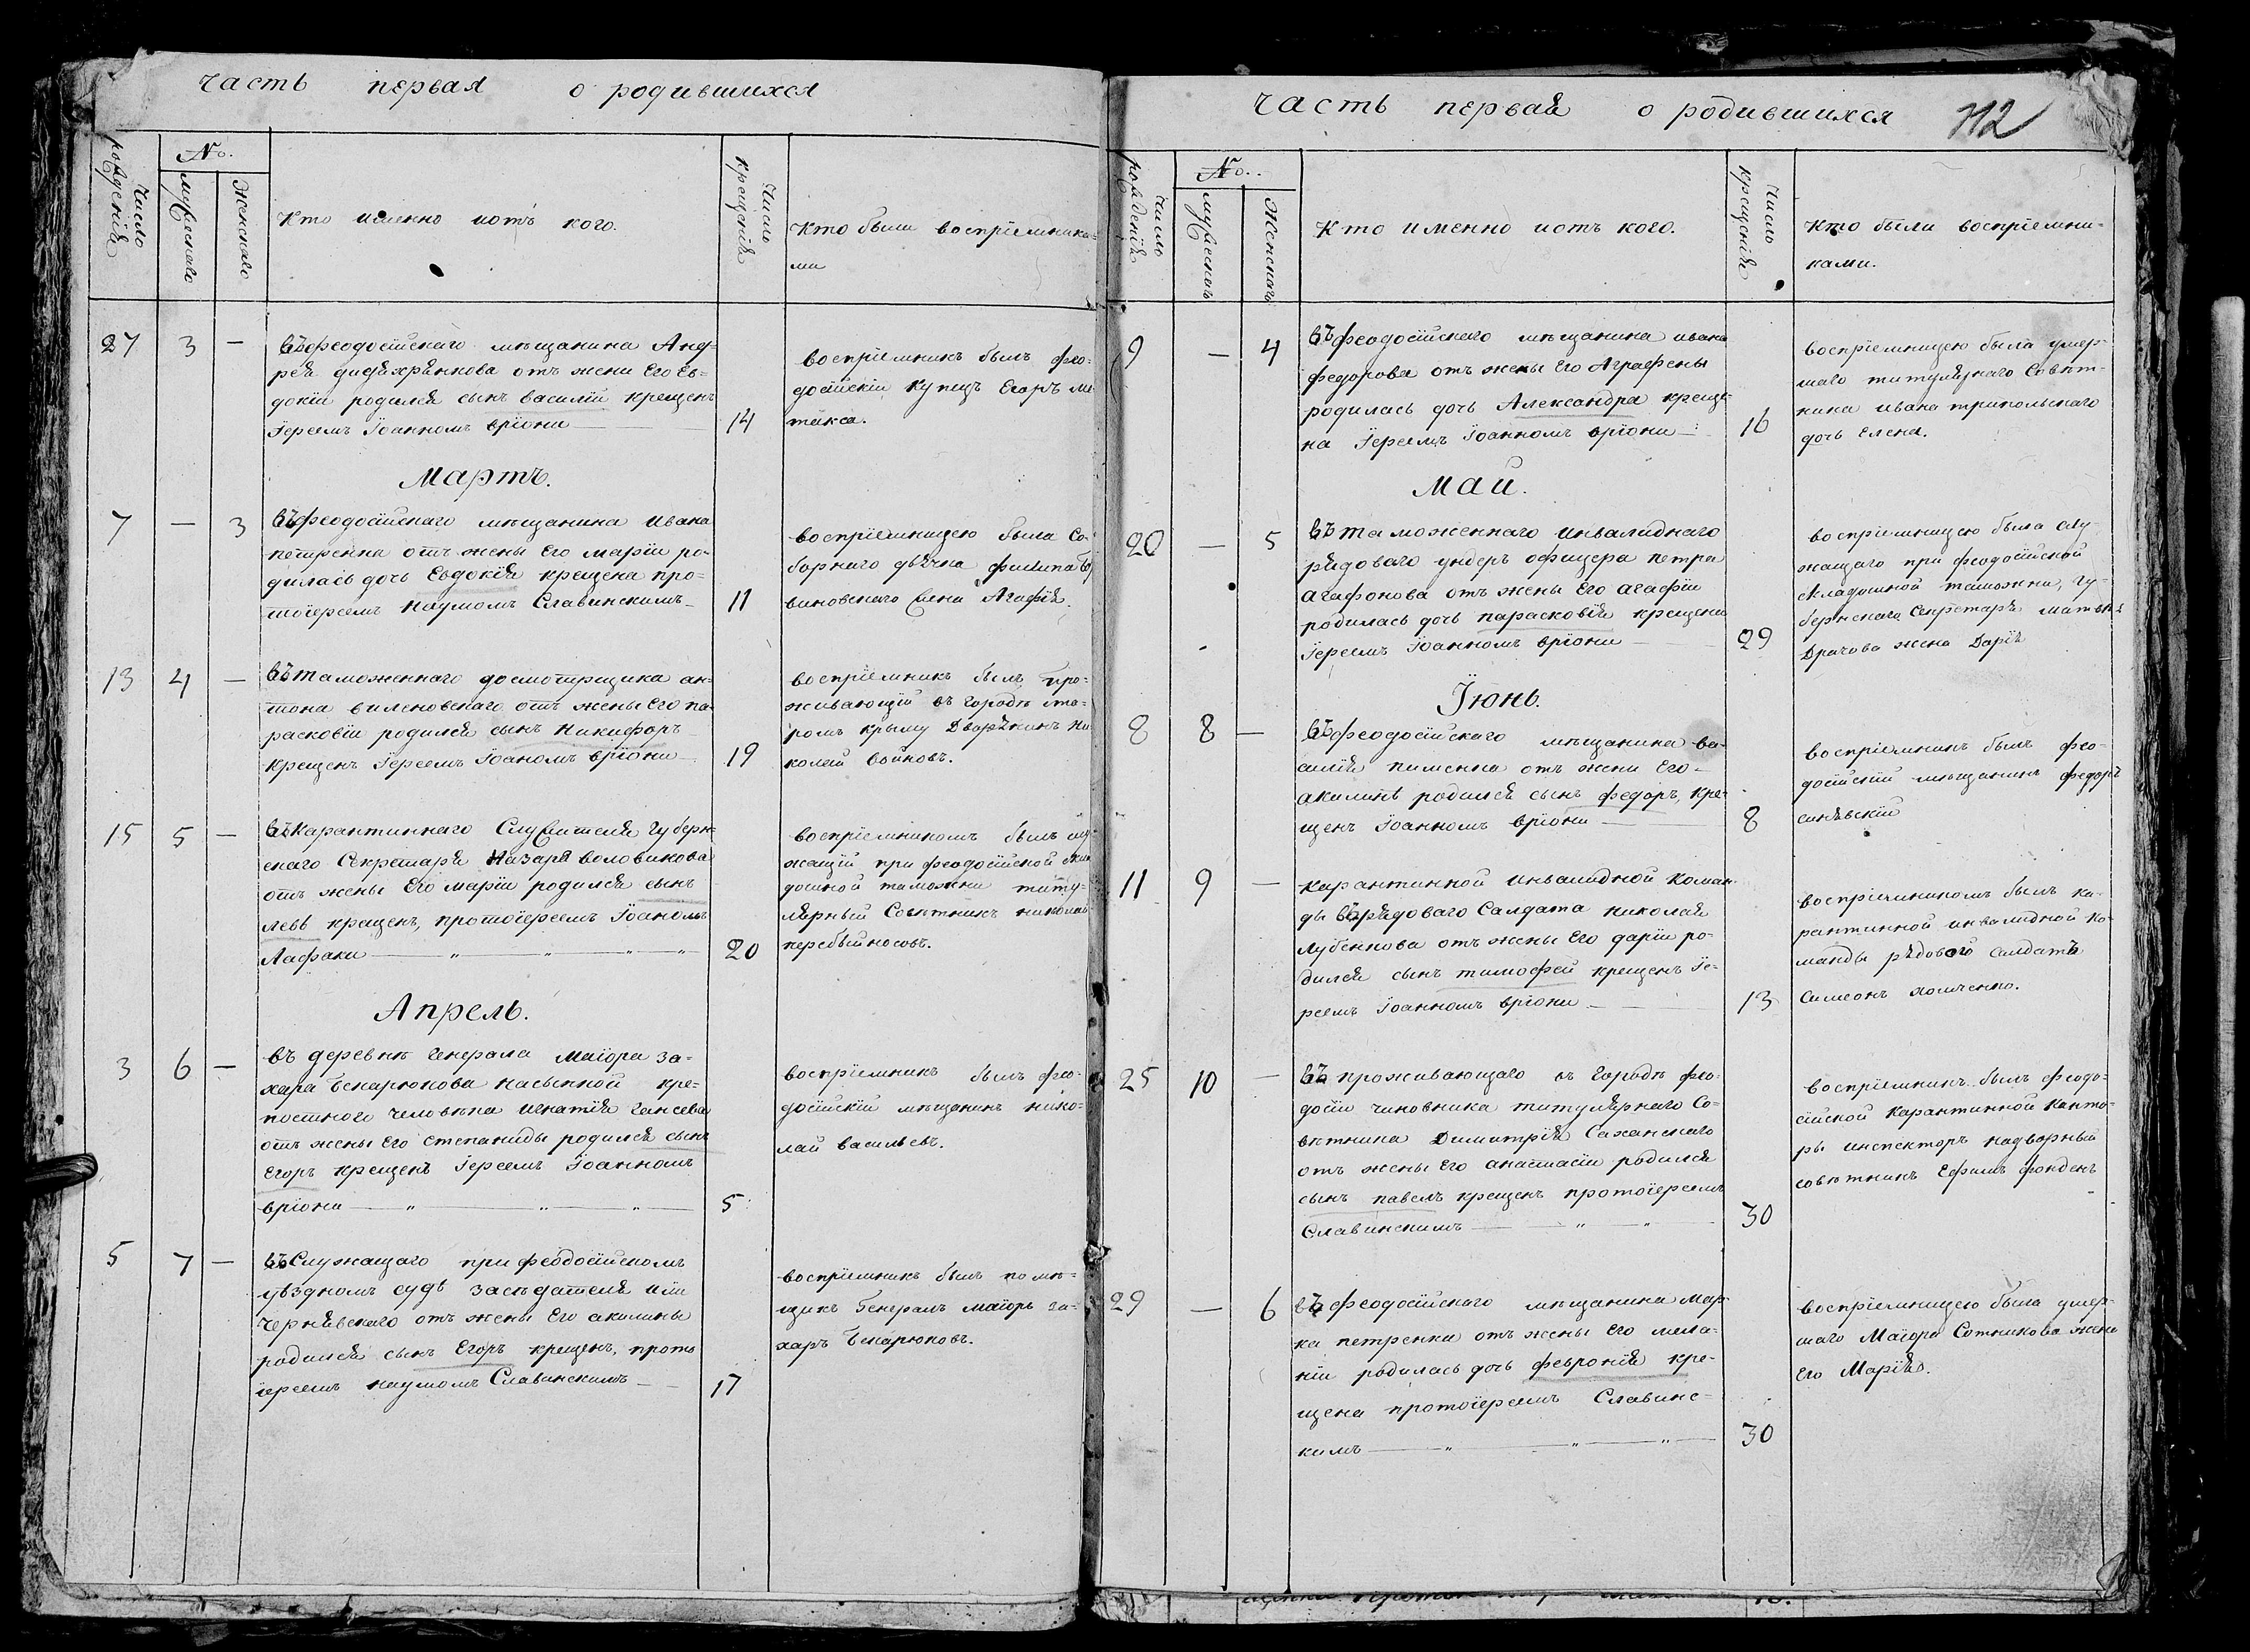 часть первая о родившихся
число рожденiя
№.
мужескаго
женскаго
Кто именно иотъ кого.
число крещенiя
Кто были воспрiемника=
ми
27 3 — въ феодосiйскаго мѣщанина Анд=
рея отъ жени Его Ев=
докiи родился сынъ василiй крещенъ
Iереемъ Iоанномъ врiони 14
воспрiемникъ былъ фео=
досiйскiи Купецъ Егоръ
Мартъ.
7 — 3 въ феодосiйскаго мѣщанина Ивана
петренка отъ жены Его марiи ро=
дилась дочь Евдокiя крещена про=
тоiереемъ наумомъ Славинскимъ 11
воспрiемницею была Со=
борнаго дьячка филипа
жена Агафiя.
13 4 — въ таможеннаго досмотрщика ан=
тона виленовскаго отъ жены Его па=
расковiи родился сынъ Никифоръ
крещенъ Iереемъ Iоаномъ врiони 19
воспрiемникъ былъ про=
живающiй въ городѣ ста=
ромъ крыму Дворянинъ Ни
колай войновъ.
15 5 — въ Карантиннаго Служителя губерн=
скаго Секретаря Назара воловикова
отъ жены Его марiи родился сынъ
левъ крещенъ, протоiереемъ Iоаномъ
Лафаки 20
воспрiемникомъ былъ слу=
жащiй при феодосiйской скла
дошной таможни титу=
лярный Совѣтникъ николай
перебыйносовъ.
Апрель.
3 6 — въ деревнѣ генерала маiора за=
хара Бекарюкова насыпной кре=
постного человѣка игнатiя гансева
отъ жены его степаниды родился сынъ
Егоръ крещенъ Iереемъ Iоанномъ
врiони 5
воспрiемникъ былъ фео=
досiйскiй мѣщанинъ нико=
лай васильевъ.
5 7 — въ Служащаго при феодосiйскомъ
уѣздномъ судѣ засѣдателя илiи
чернявскаго отъ жены Его акилины
родился сынъ Егоръ крещенъ, прото
iереемъ наумомъ Славинскимъ 17
воспрiемникъ былъ помѣ=
щикъ Генералъ маiоръ за=
харъ Бекарюковъ.
часть первая о родившихся 112
число рожденiя
№.
мужескаго
женскаго
Кто именно иотъ кого.
число крещенiя
Кто были воспрiемни=
ками.
9 — 4 въ феодосiйскаго мѣщанина ивана
федорова отъ жены Его Аграфены
родилась дочь Александра креще=
на Iереемъ Iоанномъ врiони 16
воспрiемницею была умер=
шаго титулярнаго Совѣт=
ника ивана трипольскаго
дочь Елена.
Май.
20 — 5 въ таможеннаго инвалиднаго
рядоваго ундеръ офицера петра
агафонова отъ жены Его агафiи
родилась дочь парасковiя крещена
Iереемъ Iоанномъ врiони 29
воспрiемницею была слу=
жащаго при феодосiйской
складошной таможни, гу=
бернскаго Секретаря матвѣя
Драчова жена Дарiя
Iюнь.
8 8 — въ феодосiйскаго мѣщанина ва=
силiя пименка отъ жени Его
акилинѣ родился сынъ федоръ, кре=
щенъ Iоанномъ врiони 8
воспрiемникъ былъ фео=
досiйскiй мѣщанинъ федоръ
синявскiй
11 9 — карантинной инвалидной Коман=
ды въ рядоваго Салдата николая
лубенкова отъ жены Его дарiи ро=
дился сынъ тимофей крещенъ Iе=
реемъ Iоанномъ врiони 13
воспрiемникомъ былъ ка=
рантинной инвалидной ко=
манды рядового салдатъ
Симеонъ хомченко.
25 10 — въ проживающаго въ городѣ фео=
досiи чиновника титулярнаго Со=
вѣтника Димитрiя Саханскаго
отъ жены Его анастасiи родился
сынъ павелъ крещенъ протоiереемъ
Славинскимъ 30
воспрiемникъ былъ феодо=
сiйской Карантинной Канто=
ры инспекторъ надворный
совѣтникъ Ефимъ фонденъ
29 — 6 въ феодосiйскаго мѣщанина мар=
ка петренки отъ жены Его мела=
нiи родилась дочь февронiя кре=
щена протоiереемъ Славинс=
кимъ 30
воспрiемницею была умер=
шаго Маiора Сотникова жена
Его Марiя.